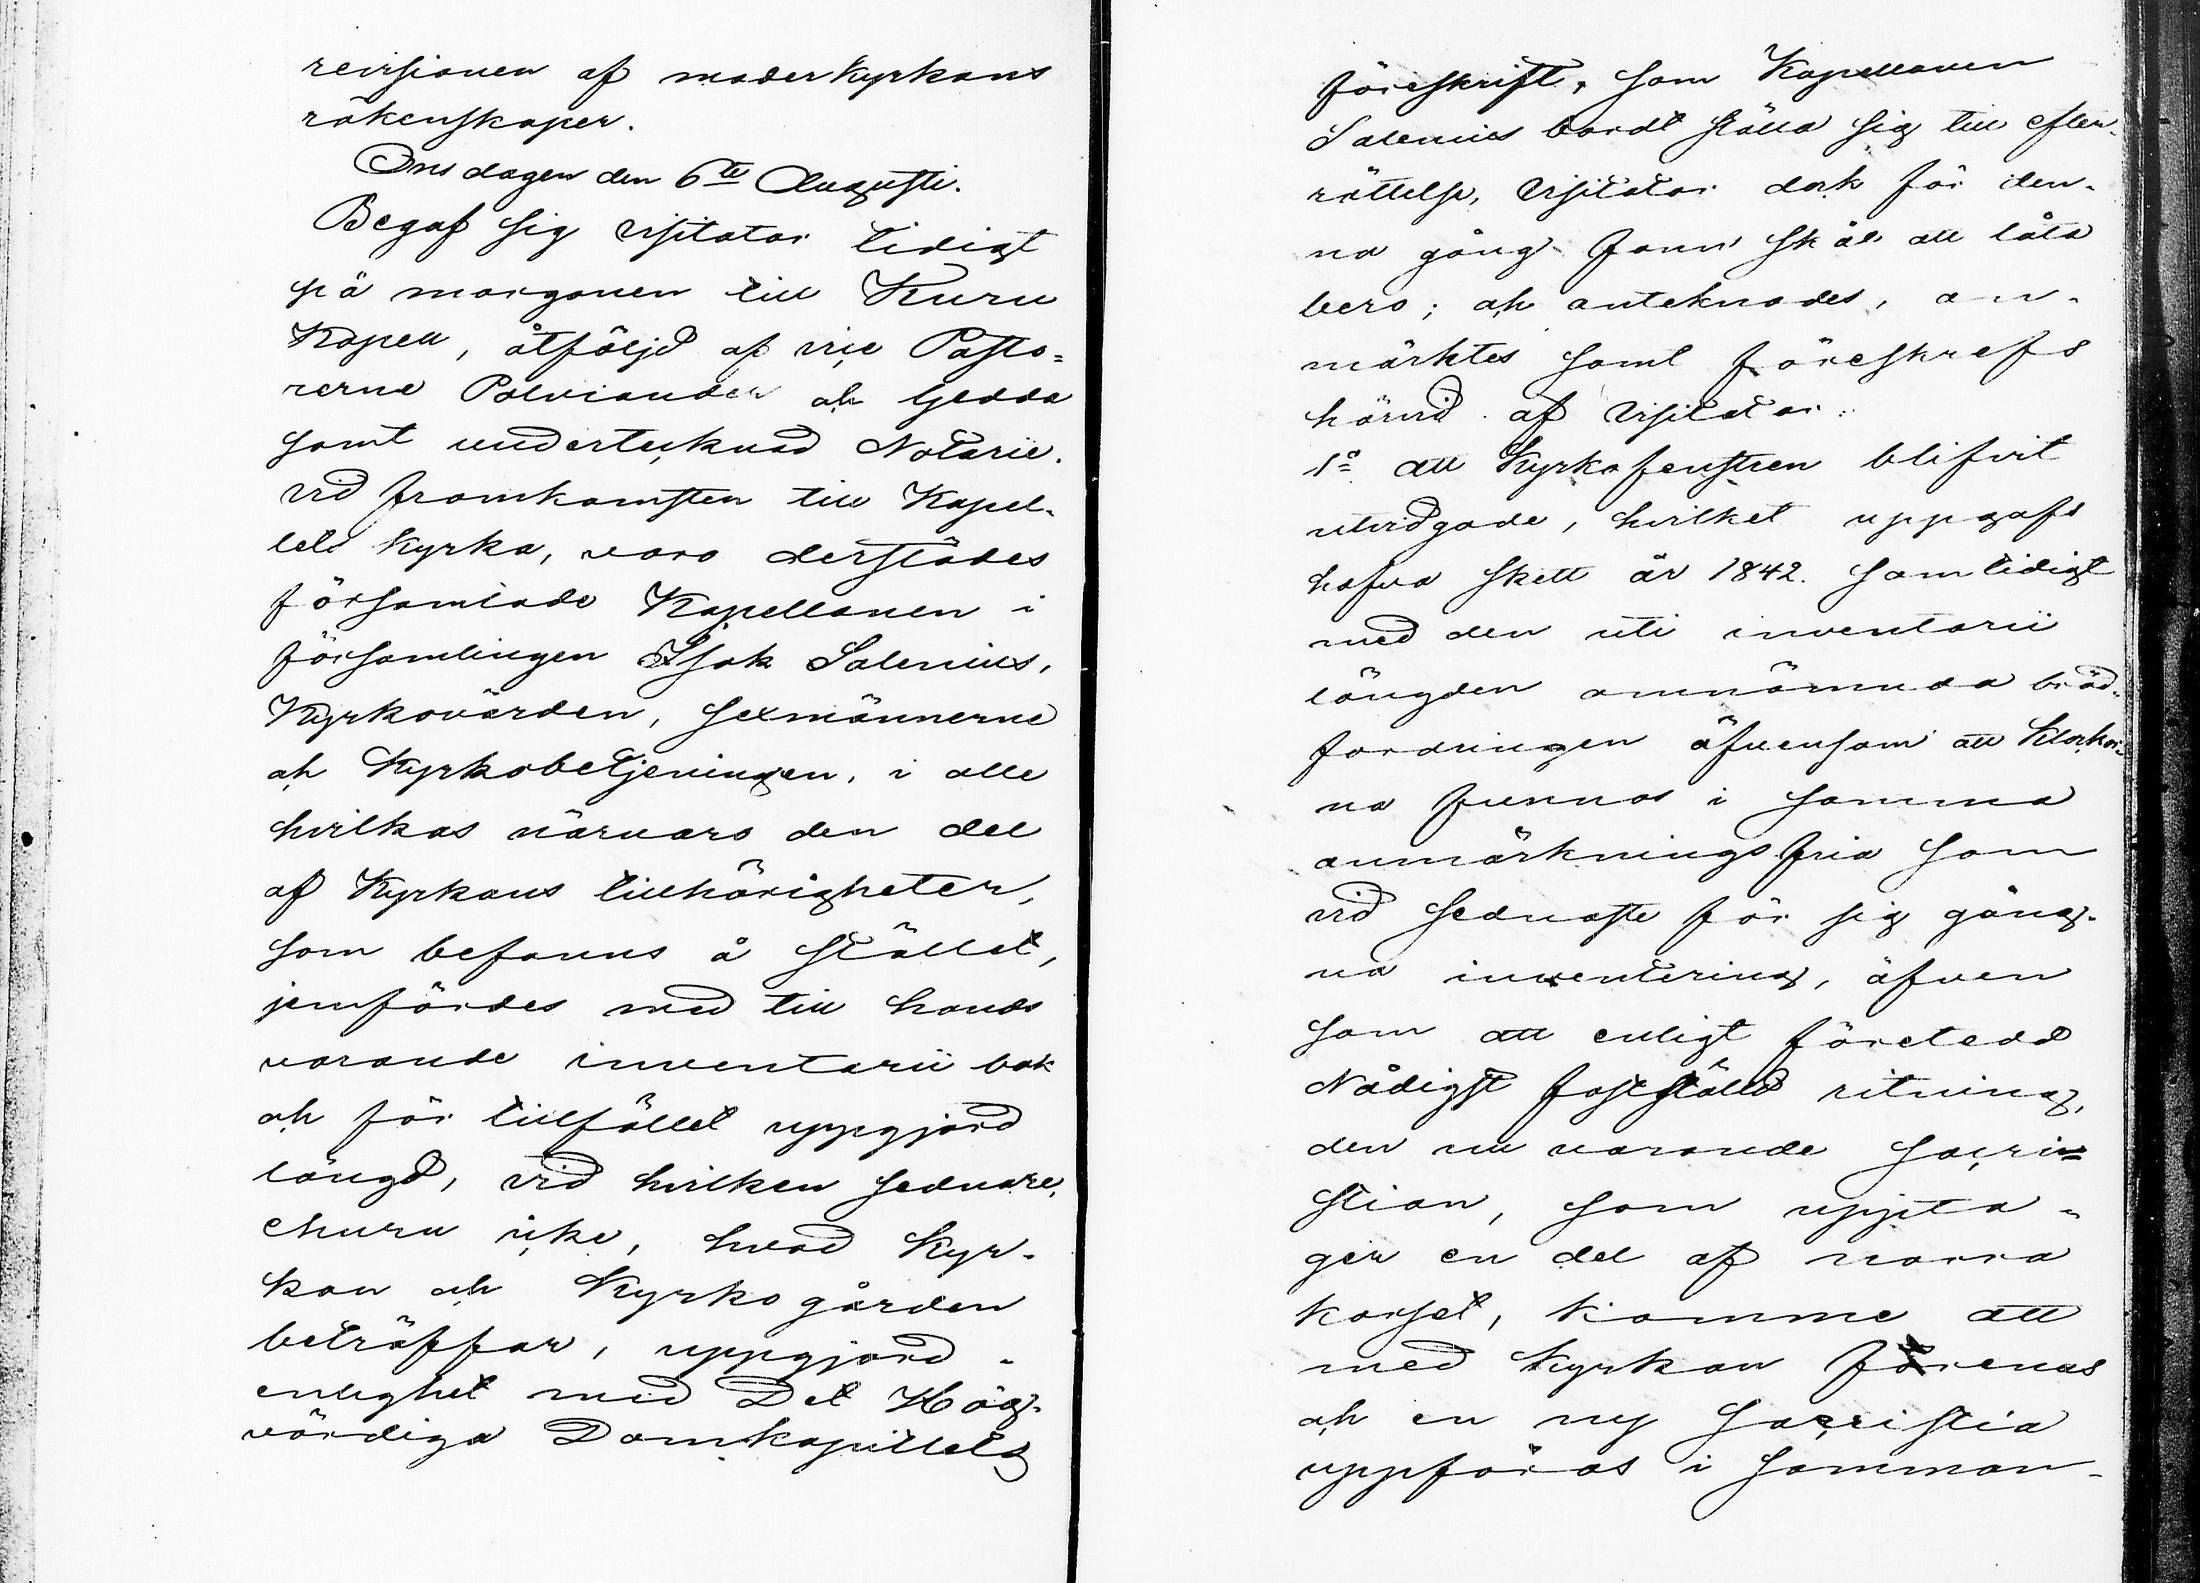 revisionen af moderkyrkans
räkenskaper.
Onsdagen den 6te Augusti.
Begaf sig Visitator tidigt
på morgonen till Kuru
Kapell, åtföljd af vice Pasto=
rerne Polviander och Gedda
samt undertecknad Notarie.
Vid framkomsten till Kapel-
lets kyrka, voro derstädes
församlade Kapellanen i
församlingen Isak Salenius,
Kyrkovärden, sexmännerne
och Kyrkobetjeningen, i alle
hvilkas närvaro den del
af Kyrkans tillhörigheter,
som befanns å stället,
jemfördes med till hands
varande inventarii bok
och för tillfället uppgjord
längd, vid hvilken sednare,
churu icke, hvad Kyr-
kan och Kyrkogården
beträffar, uppgjord -
enlighet med Det Hög-
vördiga Domkapitlets
föreskrift, som Kapellanen
Salenius bordt ställa sig till efter-
rättelse, Visitator dock för den-
na gång fann skäl att låta
bero; och anteknades, an-
märktes samt föreskrefs
härvid af Visitator:
1o att Kyrkofenstren blifvit
utvidgade, hvilket uppgafs
hafva skett år 1842. samtidigt
med den uti inventarii
längden omnämnda bräd-
fordringen äfvensom att Klockor-
na funnos i samma
anmärkningsfria som
vid sednaste för sig gång-
na inventering, äfven
som att enligt företedd
Nådigst fastställd ritning,
den nu varande sacri=
stian, som uppta-
ger en del af norra
korset, komme att
med kyrkan förenas
och en ny sacristia
uppföras i samman-